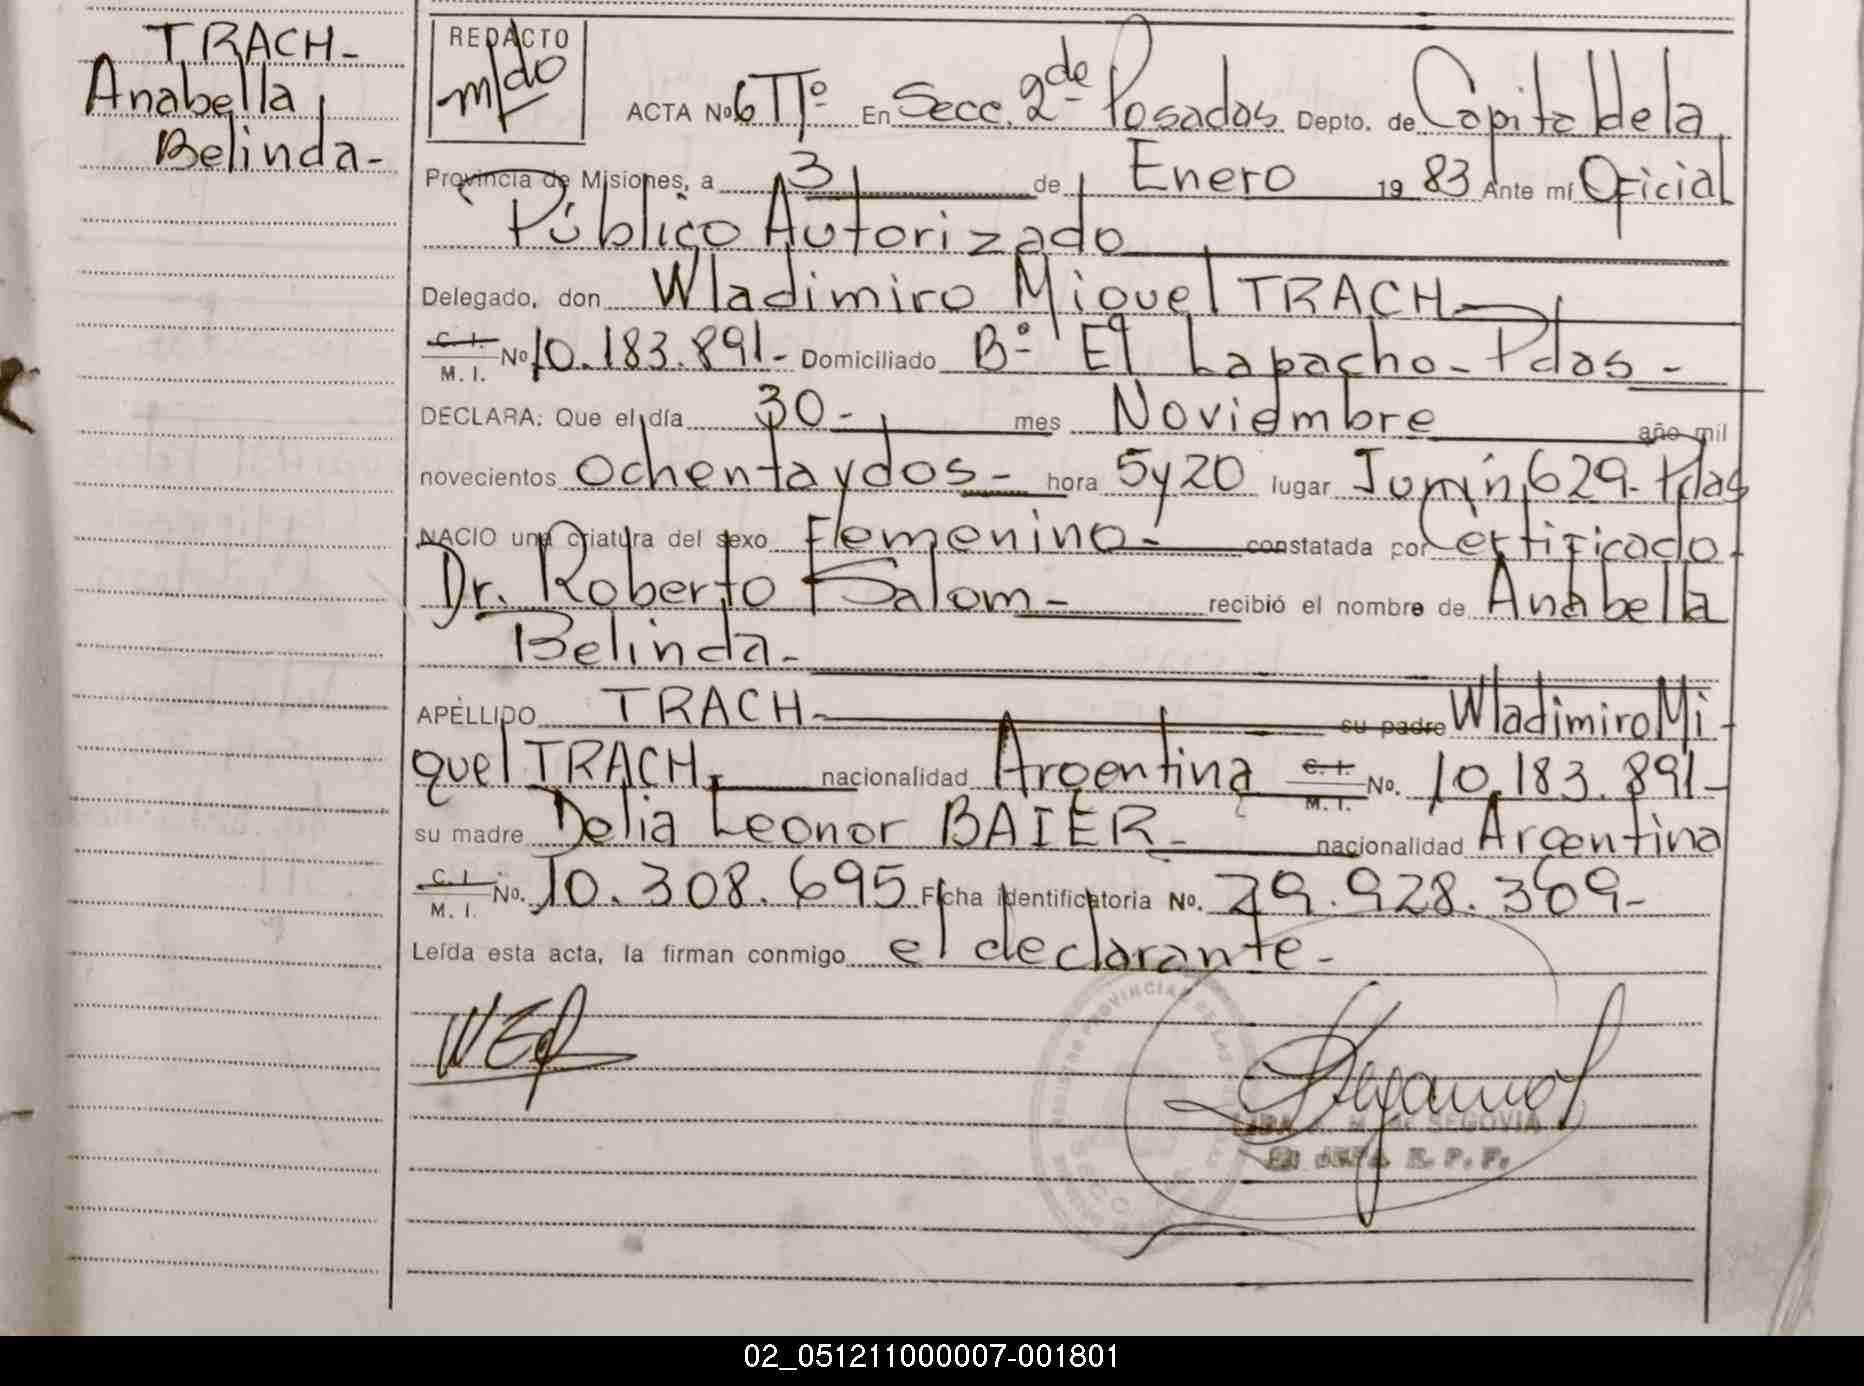 TRACH-
Anabella
Belinda-
REDACTO
ACTA Nº 6 Tº En Secc. 2da Posadas Depto. de Capital de la
Provincia de Misiones, a 3 de Enero 19 83 Ante mí Oficial
Público Autorizado
Delegado, don Wladimiro Miguel TRACH
C. I.
M. I. Nº 10.183.891- Domiciliado Bº El Lapacho - Pdas -
DECLARA: Que el día 30- mes Noviembre año mil
novecientos ochenta y dos - hora 5 y 20 lugar Junín 629- Pdas
NACIO una criatura del sexo Femenino - constatada por Certificado
Dr. Roberto Salom - recibió el nombre de Anabella
Belinda-
APELLIDO TRACH- su padre Wladimiro Mi-
guel TRACH, nacionalidad Argentina C. I.
M. I. No. 10.183.891-
su madre Delia Leonor BAIER - nacionalidad Argentina
C. I.
M. I. No. 10.308.695 Ficha identificatoria No. 29.928.369-
Leída esta acta, la firman conmigo el declarante -
M. de SEGOVIA
02_051211000007-001801